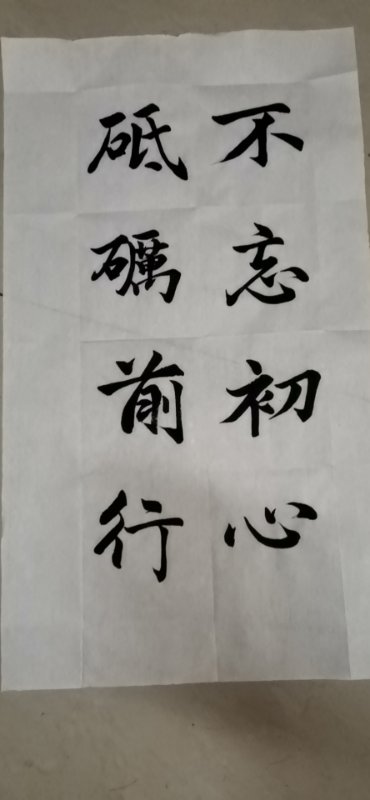 不忘初心
砥礪前行